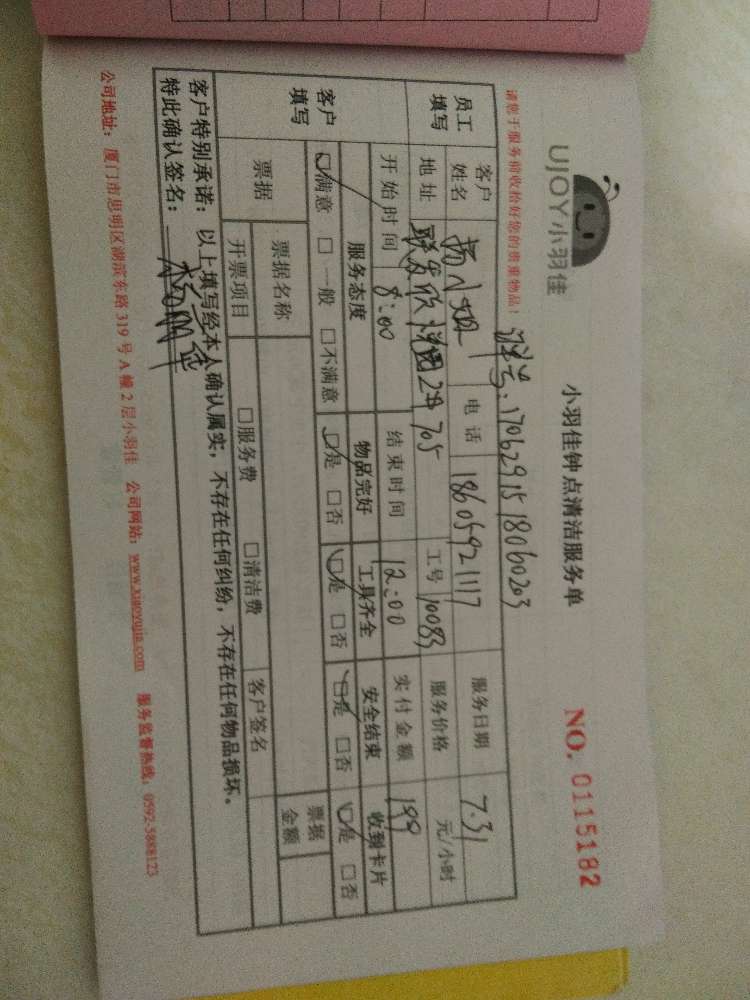 UJOY小羽佳
小羽佳钟点清洁服务单
NO. 0115182
请您于服务前收拾好您的贵重物品！
单号:17062915 18060203
员工填写 客户姓名 小姐 电话 18605921117 服务日期 7.31
地址 联发欣悦园2# 705 工号 10083 服务价格 元/小时
开始时间 8:00 结束时间 12:00 实付金额 199
客户填写 服务态度 物品完好 工具齐全 安全结束 收到卡片
☑满意 □一般 □不满意 ☑是 □否 ☑是 □否 ☑是 □否 ☑是 □否
票据 票据名称 票据金额
开票项目 □服务费 □清洁费 客户签名
客户特别承诺：以上填写经本人确认属实，不存在任何纠纷，不存在任何物品损坏。
特此确认签名：
公司地址：厦门市思明区湖滨东路319号A幢2层小羽佳 公司网站：www.xiaoyujia.com 服务监督热线：0592-5888123